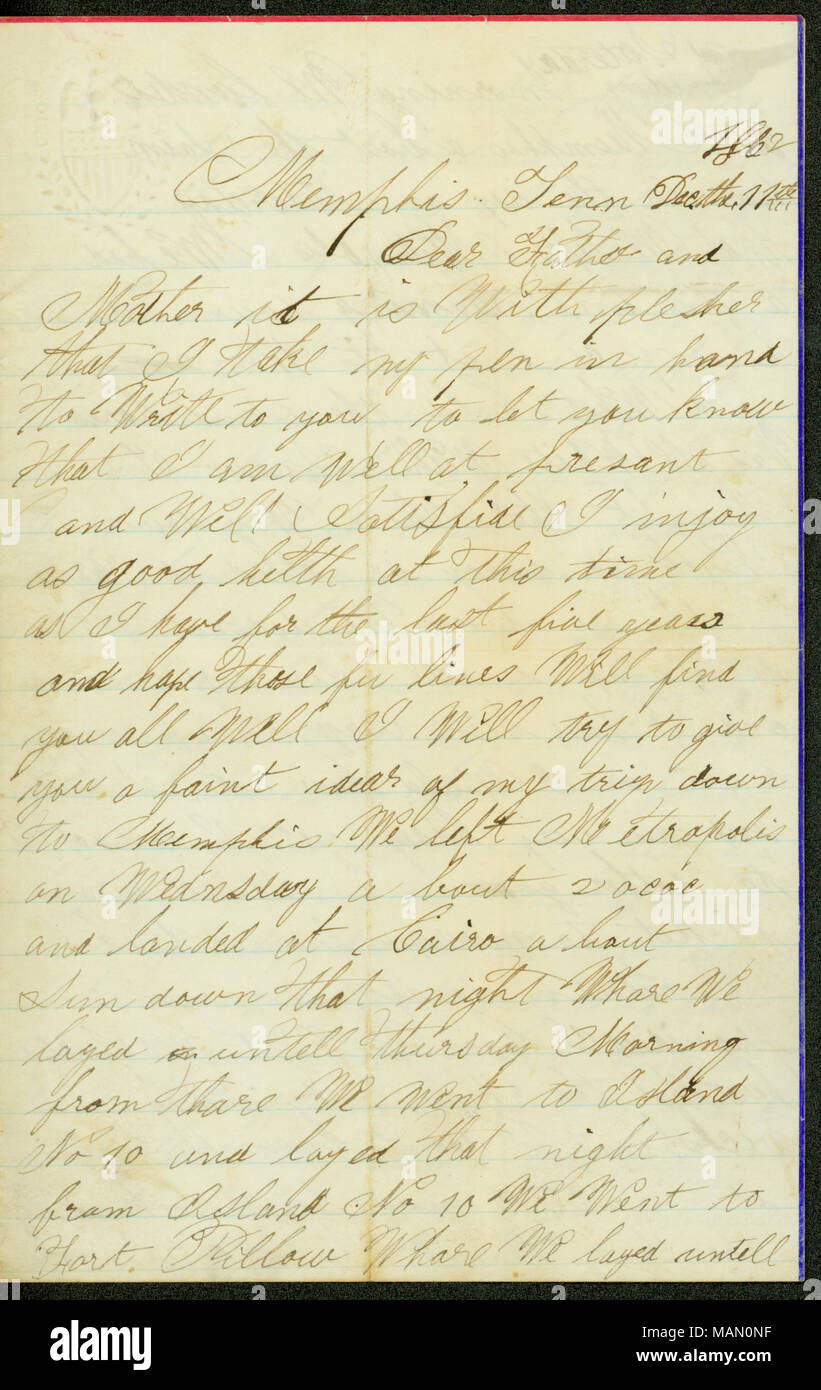 1862
Memphis. Tenn Decth. 11th
Dear Father and
Mother it is With plesher
that I take my pen in hand
to Write to you to let you know
that I am Well at presant
and Well Satisfide I injoy
as good helth at this time
as I have for the last five years
and hope those few lines Will find
you all Well I Will try to give
you a faint idear of my trip down
to Memphis. We left Metropolis
on Wednsday a bout 2 ococ
and landed at Cairo a bout
Sun down that night Whare We
layed untell thursday Morning
from thare We Went to Island
No 10 and layed that night
from Island No 10 We Went to
Fort. Pillow Whare We layed untell
alamy
alamy
Image ID: MAN0NF
www.alamy.com